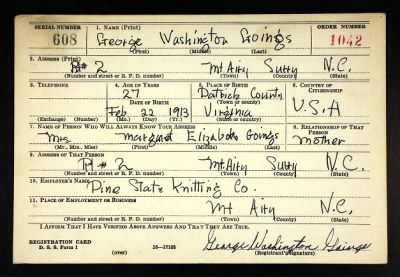 SERIAL NUMBER 1. NAME (Print) ORDER NUMBER
608 George Washington Goings 1042
(First) (Middle) (Last)
2. ADDRESS (Print)
R# 2 Mt Airy Surry N.C.
(Number and street or R. F. D. number) (Town) (County) (State)
3. TELEPHONE 4. AGE IN YEARS 5. PLACE OF BIRTH 6. COUNTRY OF CITIZENSHIP
27 Patrick County
DATE OF BIRTH (Town or county)
Feb 22 1913 Virginia U.S.A
(Exchange) (Number) (Mo.) (Day) (Yr.) (State or country)
7. NAME OF PERSON WHO WILL ALWAYS KNOW YOUR ADDRESS 8. RELATIONSHIP OF THAT PERSON
Mrs Margret Elizabeth Goings mother
(Mr., Mrs., Miss) (First) (Middle) (Last)
9. ADDRESS OF THAT PERSON
R# 2 Mt. Airy Surry N.C.
(Number and street or R. F. D. number) (Town) (County) (State)
10. EMPLOYER'S NAME
Pine State Knitting Co.
11. PLACE OF EMPLOYMENT OR BUSINESS
Mt Airy N.C.
(Number and street or R. F. D. number) (Town) (County) (State)
I AFFIRM THAT I HAVE VERIFIED ABOVE ANSWERS AND THAT THEY ARE TRUE.
REGISTRATION CARD George Washington Goings
D. S. S. Form 1 (over) 16—17105 (Registrant's signature)